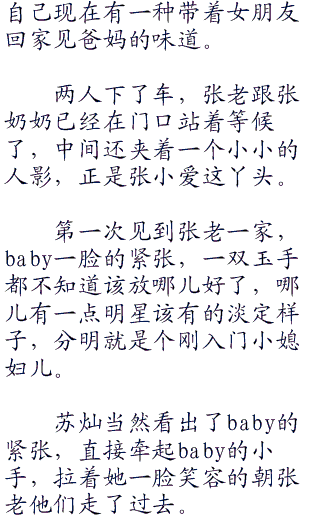 自己现在有一种带着女朋友
回家见爸妈的味道。
两人下了车，张老跟张
奶奶已经在门口站着等候
了，中间还夹着一个小小的
人影，正是张小爱这丫头。
第一次见到张老一家，
baby一脸的紧张，一双玉手
都不知道该放哪儿好了，哪
儿有一点明星该有的淡定样
子，分明就是个刚入门小媳
妇儿。
苏灿当然看出了baby的
紧张，直接牵起baby的小
手，拉着她一脸笑容的朝张
老他们走了过去。